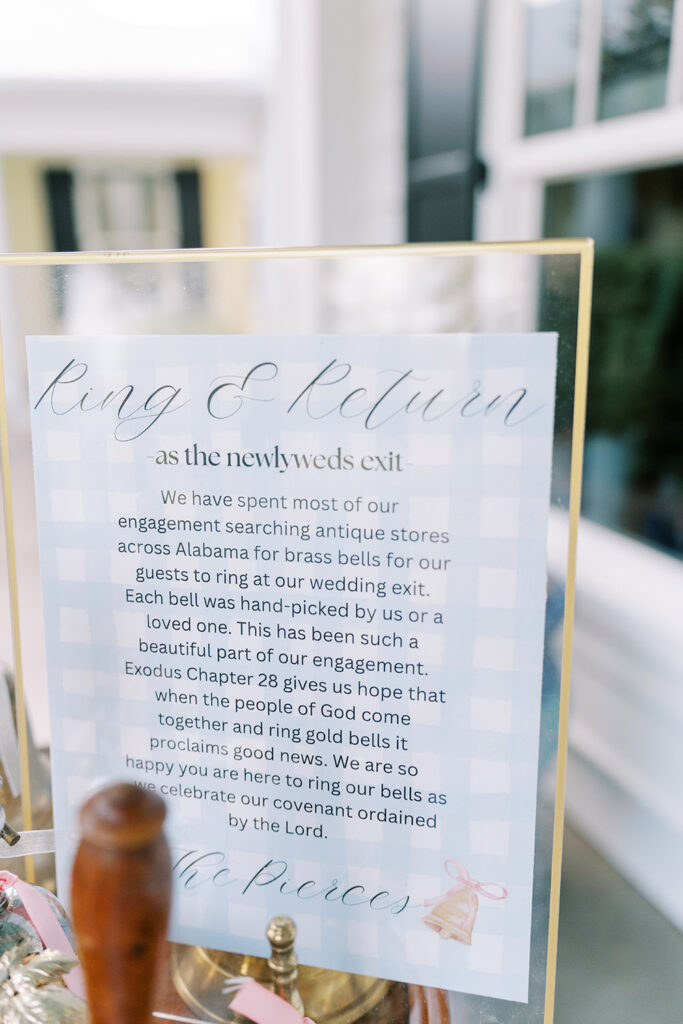 Ring & Return
-as the newlyweds exit-
We have spent most of our
engagement searching antique stores
across Alabama for brass bells for our
guests to ring at our wedding exit.
Each bell was hand-picked by us or a
loved one. This has been such a
beautiful part of our engagement.
Exodus Chapter 28 gives us hope that
when the people of God come
together and ring gold bells it
proclaims good news. We are so
happy you are here to ring our bells as
we celebrate our covenant ordained
by the Lord.
The Pierces